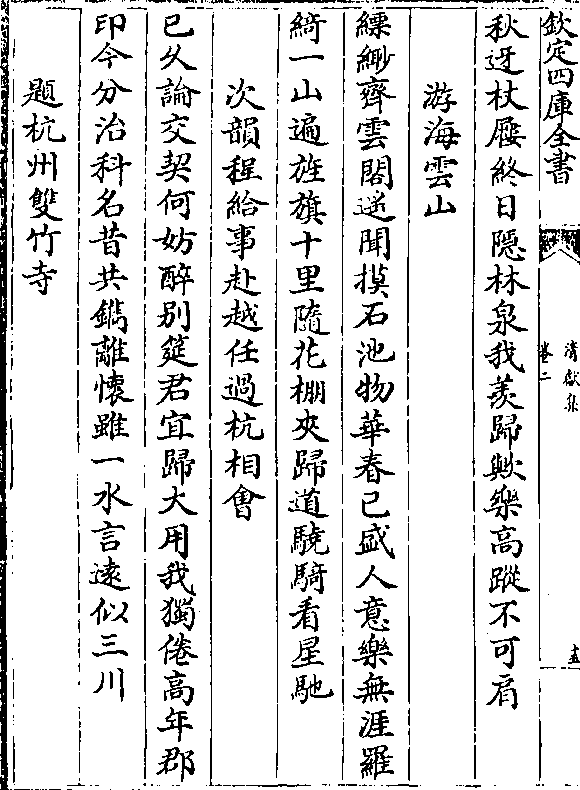 欽定四庫全書
清獻集
卷二
秋迓杖屨終日隱林泉我羨歸歟樂高蹤不可肩
游海雲山
縹緲齊雲閣遥聞摸石池物華春已盛人意樂無涯羅
綺一山遍旌旗十里隨花棚夾歸道驍騎看星馳
次韻程給事赴越任過杭相會
已久論交契何妨醉别筵君宜歸大用我獨倦高年郡
印今分治科名昔共鐫離懷雖一水言遠似三川
題杭州雙竹寺